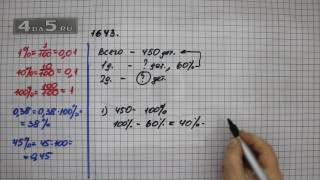 4да5.ru
1643.
1% = 1/100 = 0,01
10% = 10/100 = 0,1
100% = 100/100 = 1
0,38 = 0,38·100% =
= 38%
45% = 45:100 =
= 0,45
Всего - 450 дет.
1д. - ? дет., 60%
2д. - ?
1) 450 - 100%
100% - 60% = 40% -